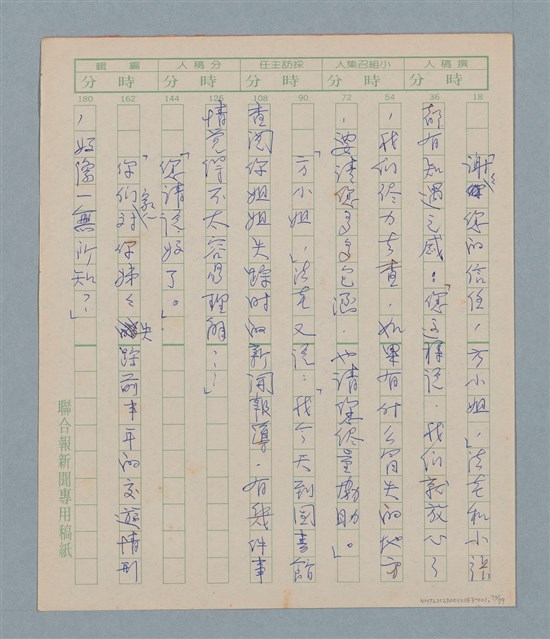 撰稿人 小組召集人 採訪主任 分稿人 編輯
時 分 時 分 時 分 時 分 時 分
18 36 54 72 90 108 126 144 162 180
謝謝您的信任，方小姐，」法老和小張
都有知遇之感：「您這樣說，我們就放心了
，我們儘力去查，如果有什么冒失的地方
，要請您多多包涵，也請您儘量協助。」
「方小姐，」法老又說：「我今天到圖書館
查閱你姐姐失踪时的新闻報導，有幾件事
情觉得不太容易理解……」
「您請說好了。」
「你们家人对你姊姊失踪前半年的交遊情形
，好像一無所知？」
聯合報新聞專用稿紙